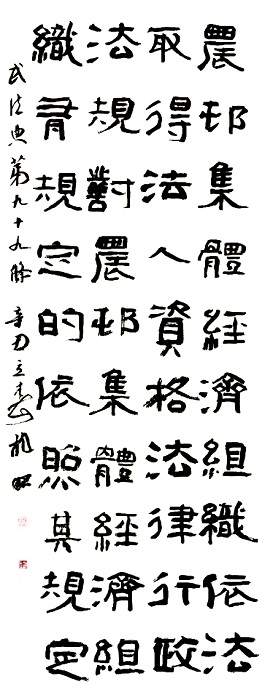 農邨集體經濟組織依法
取得法人資格法律行政
法規對農邨集體經濟組
織有規定的依照其規定
民法典第九十九條 辛丑立春